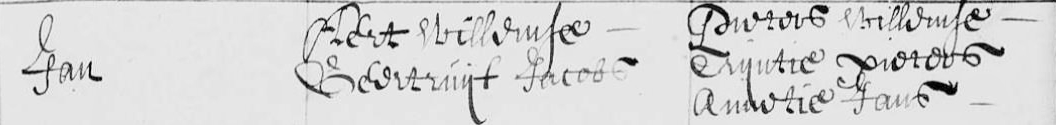 Jan
Piert Willemse
Geertruijt Jacobs
Pieters Willemse
Trijntie Pieters
Annetie Jans